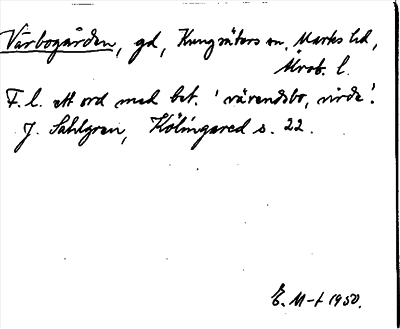 Vårbogården, gd, Kungsäters sn, Marks hd,
Älvsb. l.
F. l. ett ord med bet. 'värendsbo, virde'.
J. Sahlgren, Kölingared s. 22.
E. M-t 1950.